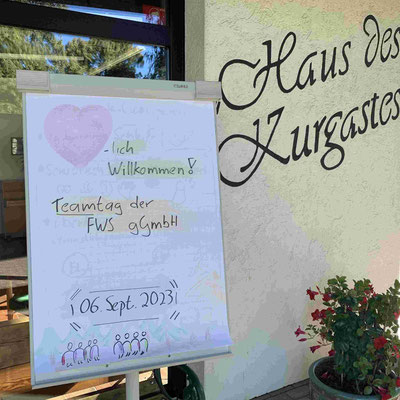 -lich
Willkommen!
Teamtag der
FWS gGmbH
06. Sept. 2023
Haus des
Kurgastes